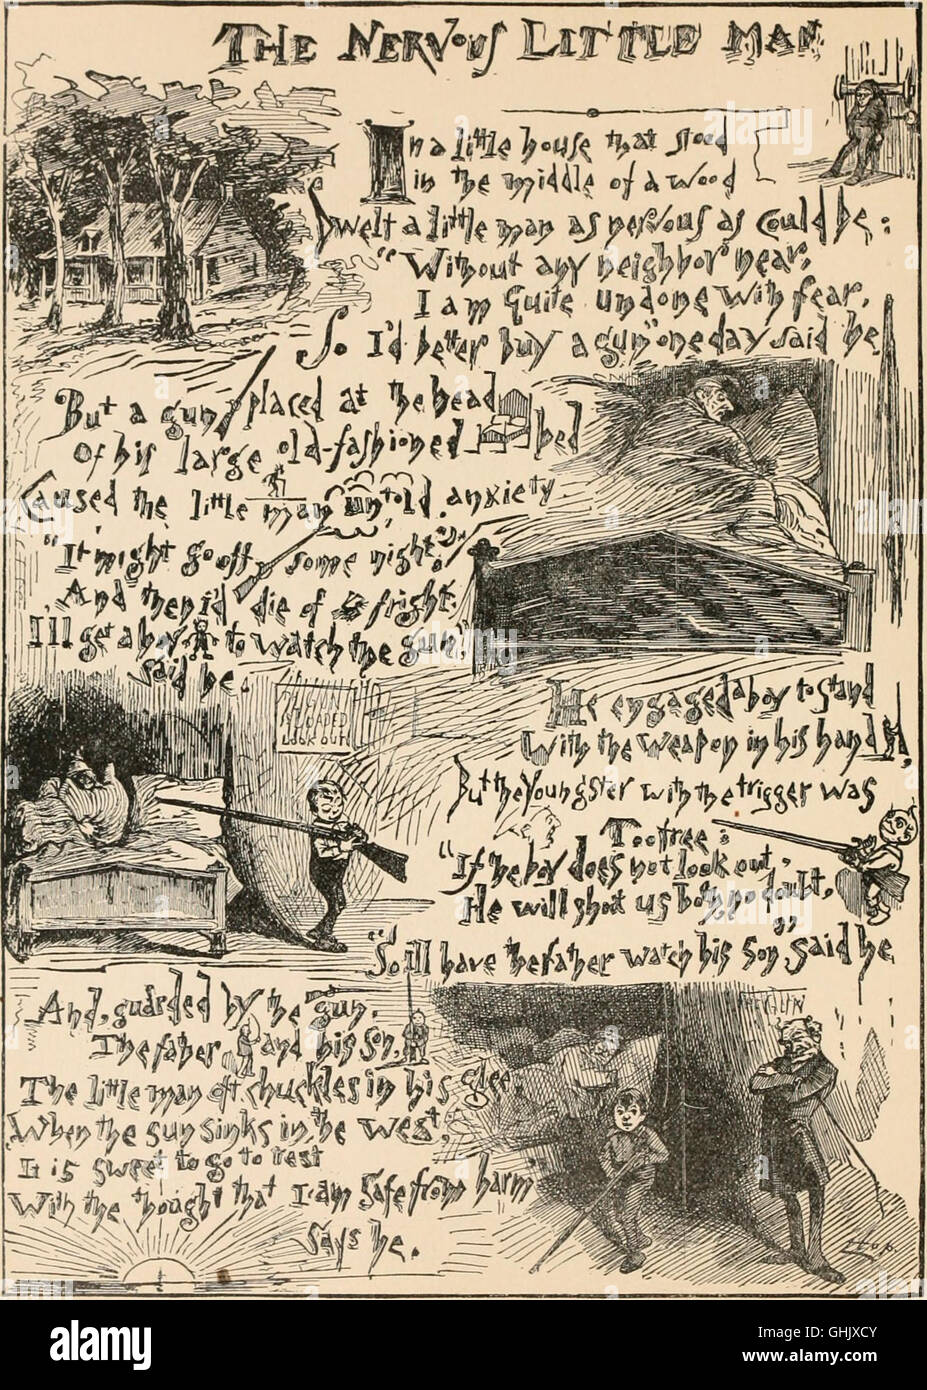 THE NERVOUS LITTLE MAN
In a little house that stood
in the middle of a wood
Dwelt a little man as nervous as could be:
"Without any neighbor near,
I am quite undone with fear,
So I'd better buy a gun" one day said he
But a gun placed at the head
Of his large old-fashioned bed
Caused the little man untold anxiety
"It might go off some night,
And then I'd die of fright.
I'll get a boy to watch the gun!"
Said he.
GUN
IS LOADED
LOOK OUT!
He engaged a boy to stand
With the weapon in his hand,
But the youngster with the trigger was
Too free:
"If the boy does not look out,
He will shoot us both, no doubt,
"So I'll have the father watch his son," said he
And, guarded by the gun,
The father and his son,
The little man oft chuckles in his glee
When the sun sinks in the west,
It is sweet to go to rest
With the thought that I am safe from harm
Says he.
GUN
Hop.
alamy
alamy
Image ID: GHJXCY
www.alamy.com